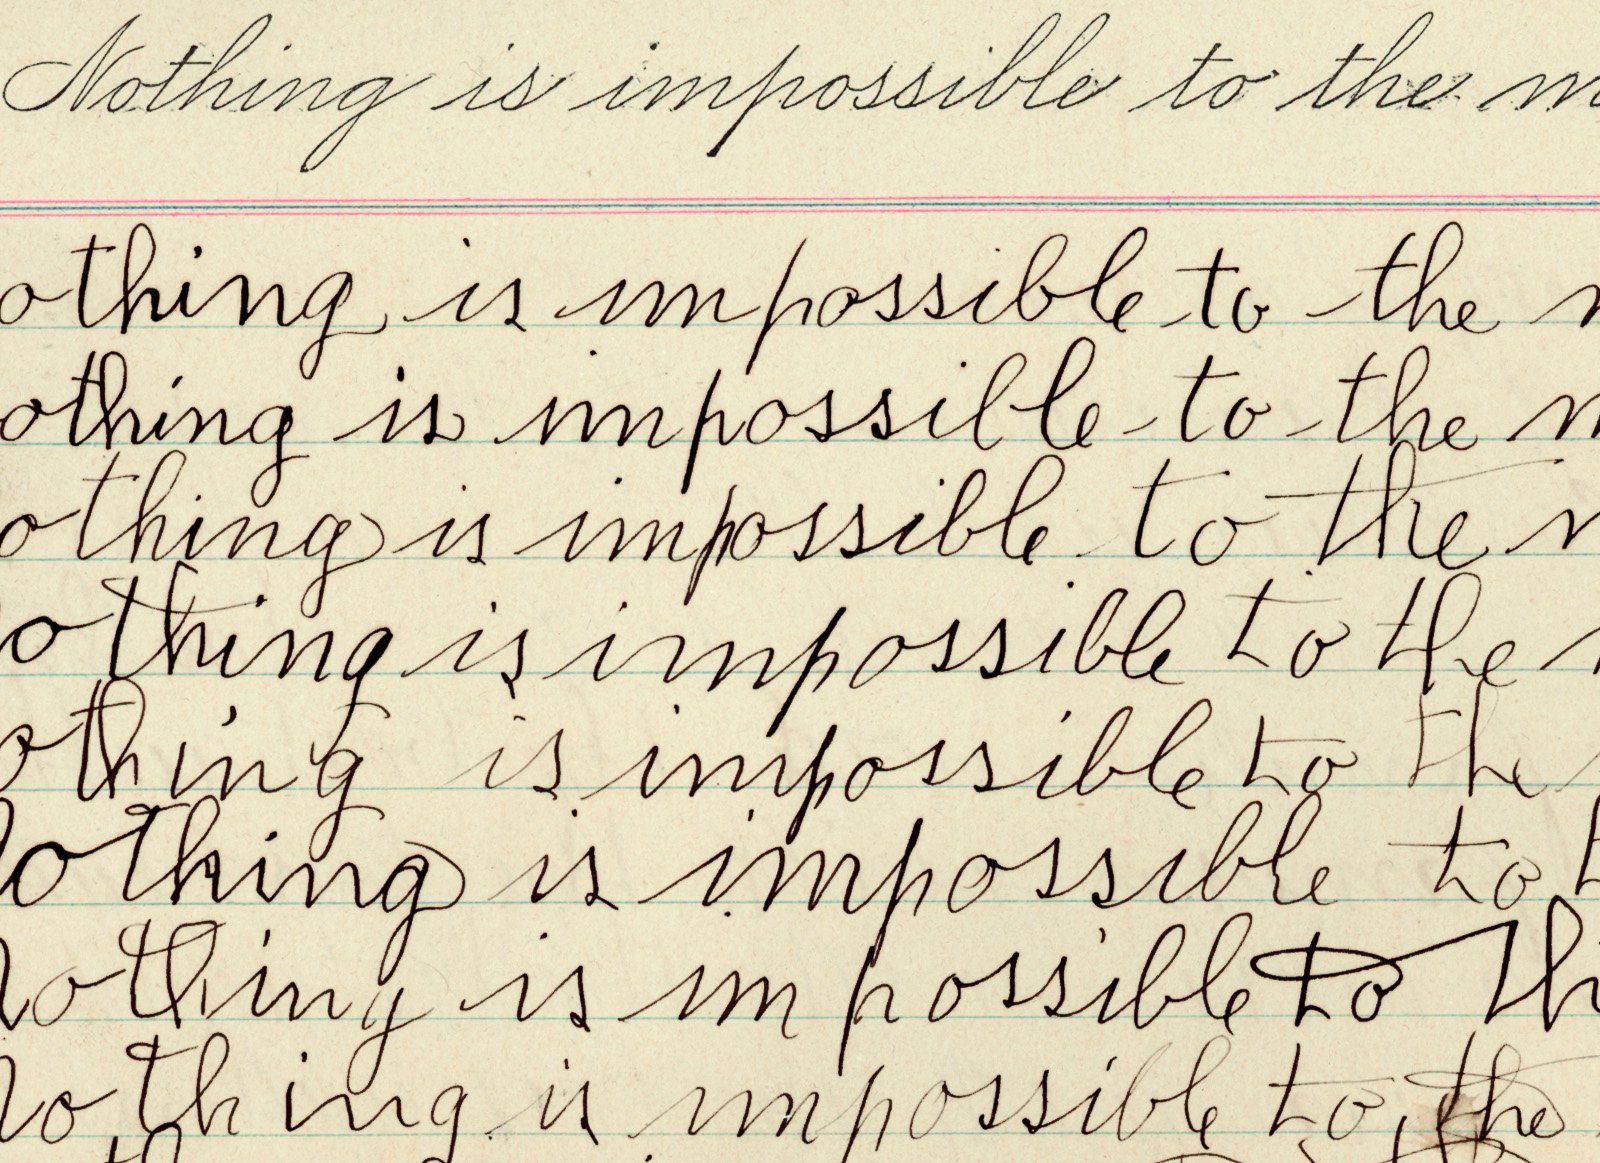 Nothing is impossible to the m
othing is impossible to the
othing is impossible to the m
othing is impossible to the
othing is impossible to the
othing is impossible to the
othing is impossible to
othing is impossible to th
othing is impossible to the